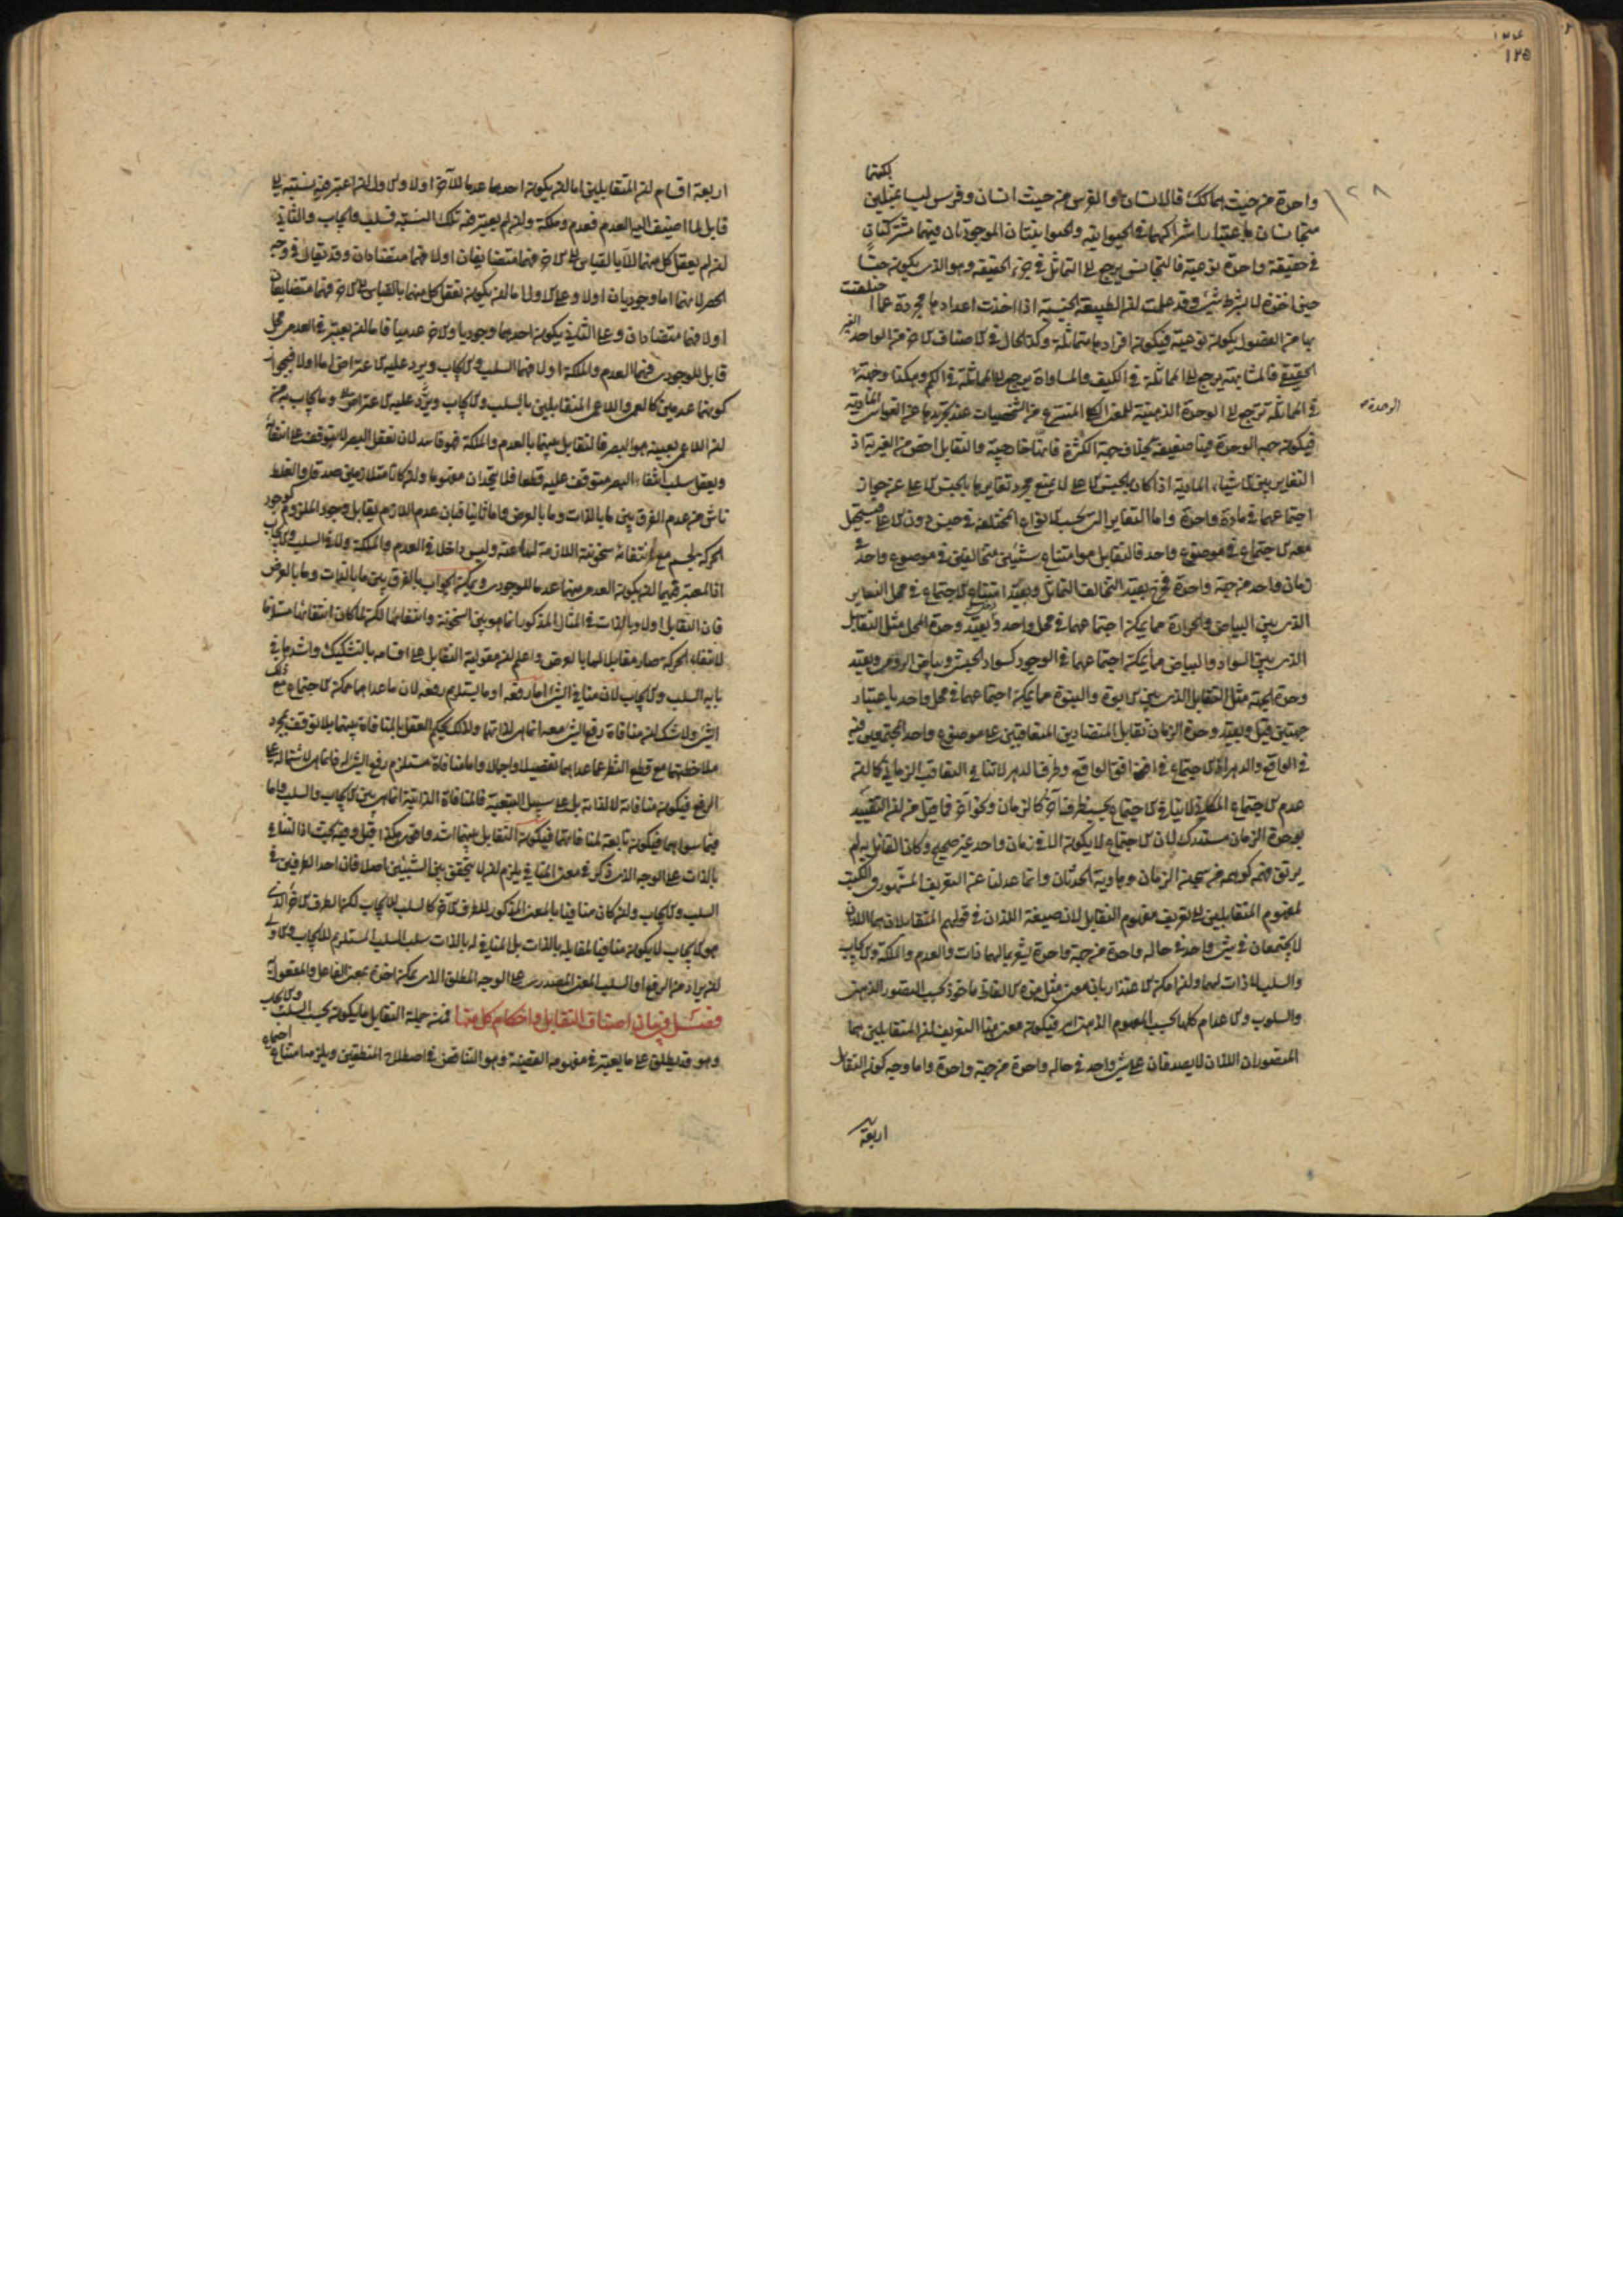 ١٢٥
١٢٨
لكنها
واحدة من حيث هما كذلك فالانسان والفرس من حيث انسان وفرس ليسا بمثلين
متجانسان باعتبار اشتراكهما في الحيوانية والحيوانيتان الموجودتان فيهما مشتركتان
في حقيقة واحدة نوعية فالتجانس يرجع الى التماثل في جزء الحقيقة وهو الذى يكون جنسا
حين اخذه لا بشرط شئ وقد علمت ان الطبيعة الجنسية اذا اخذت اعدادها مجردة عما اختلفت
بها من الفصول يكون نوعية فيكون افرادها متماثلة وكذا الحال في الاصناف الاخر من الواحد الغير
الحقيقي فالمشابهة يرجع الى المماثلة في الكيف والمساواة يرجع الى المماثلة في الكم وهكذا وجهة
الوحدة
في المماثلة ترجع الى الوحدة الذهنية للمعنى الكلى المنتزع من الشخصيات عند تجريدها عن الغواشى المادية
فيكون جهة الوحدة فيها ضعيفة بخلاف جهة الكثرة فانها خارجية والتقابل اخص من الغيرية اذ
التغاير بين الاشياء المادية اذا كان بالجنس الاعلى لا يمنع مجرد تغايرها بالجنس الاعلى عن جواز
اجتماعهما في مادة واحدة واما التغاير الذى بحسب الانواع المختلفة في جنس دون الاعلى فيستحيل
معه الاجتماع في موضوع واحد فالتقابل هو امتناع شيئين متخالفين في موضوع واحد في
زمان واحد من جهة واحدة فخرج بقيد التخالف التماثل وبقيد امتناع الاجتماع في محل التغاير
الذى بين البياض والحرارة مما يمكن اجتماعهما في محل واحد وبقيد وحدة المحل مثل التقابل
الذى بين السواد والبياض مما يمكن اجتماعهما في الوجود كسواد الحبشى وبياض الرومى وبقيد
وحدة الجهة مثل التقابل الذى بين الابوة والبنوة مما يمكن اجتماعهما في محل واحد باعتبار
جهتين قيل وبقيد وحدة الزمان تقابل المتضادين المتعاقبين على موضوع واحد المجتمعين فيه
في الواقع والدهر اذ الاجتماع في افق الواقع وظرف الدهر لا ينافي التعاقب الزماني كما انه
عدم الاجتماع المكاني لا ينافي الاجتماع بحسب ظرف آخر كالزمان وكنحو آخر فما قيل من ان التقييد
بوحدة الزمان مستدرك لان الاجتماع لا يكون الا في زمان واحد غير صحيح وكان القائل به لم
يرتق فهمه كوهمه من سجن الزمان وهاوية الحدثان وانما عدلنا عن التعريف المشهور في الكتب
لمفهوم المتقابلين الى تعريف مفهوم التقابل لان صيغة اللذان في قولهم المتقابلان هما اللذان
لا يجتمعان في شئ واحد في حالة واحدة من جهة واحدة يشعر بالهما ذات والعدم والملكة والايجاب
والسلب لا ذات لهما وان امكن الاعتذار بان معنى مثل هذه الالفاظ ماخوذ بحسب التصور الذهنى
والسلوب والاعدام كلها بحسب المفهوم الذهنى امر فيكون معنى هذا التعريف ان المتقابلين هما
المتصوران اللذان لا يصدقان على شئ واحد في حالة واحدة من جهة واحدة واما وجه كون التقابل
اربعة
اربعة اقسام ان المتقابلين اما ان يكون احدهما عدما للآخر اولا والاول ان اعتبر فيه نسبته الى
قابل لما اضيف اليه العدم فعدم وملكة وان لم يعتبر فيه تلك النسبة فسلب وايجاب والثاني
ان لم يعقل كل منهما الا بالقياس الى الاخر فهما متضايفان اولا فهما متضادان وقد يقال في وجه
الحصر انهما اما وجوديان اولا وعلى الاول اما ان يكون تعقل كل منهما بالقياس الى الاخر فهما متضايفان
اولا فهما متضادان وعلى الثاني يكون احدهما وجوديا والاخر عدميا فاما ان يعتبر في العدمى محل
قابل للوجودى فهما العدم والملكة اولا فهما السلب والايجاب ويرد عليه الاعتراض اما اولا فبجواز
كونهما عدميين كالعمى واللاعمى المتقابلين بالسلب والايجاب ويرد عليه الاعتراض وما يجاب به من
ان اللاعمى بعينه هو البصر فالتقابل بينهما بالعدم والملكة فهو فاسد لان تعقل البصر لا يتوقف على انتفائه
وتعقل سلب انتفاء البصر متوقف عليه قطعا فلا يتحدان مفهوما وان كانا متلازمين صدقا والغلط
ناش من عدم الفرق بين ما بالذات وما بالعرض واما ثانيا فبان عدم اللازم يقابل وجود الملزوم كوجود
الحركة لجسم مع انتفاء سخونته اللازمة لها عنه وليس داخلا في العدم والملكة ولا في السلب والايجاب
اذ المعتبر فيهما ان يكون العدمى منهما عدما للوجودى ويمكن الجواب بالفرق بين ما بالذات وما بالعرض
فان التقابل اولا وبالذات في المثال المذكور انما هو بين السخونة وانتفائها لكن لما كان انتفائها مستلزما
لانتفاء الحركة صار مقابلا لها بالعرض واعلم ان مقولية التقابل على اقسامه بالتشكيك واشدها في
بابه السلب والايجاب لان منافي الشئ اما رفعه او ما يستلزم رفعه لان ما عداهما ممكن الاجتماع مع ذلك
الشئ ولا شك ان منافاة رفع الشئ معه انما هى لذاتهما ولذلك يحكم العقل بالمنافاة بينهما بلا توقف بمجرد
ملاحظتهما مع قطع النظر عما عداهما تفصيلا واجمالا واما منافاة مستلزم رفع الشئ له فانما هى لاشتماله على
الرفع فيكون منافاته لا لذاته بل على سبيل التبعية فالمنافاة الذاتية انما هى بين الايجاب والسلب واما
فيما سواهما فيكون تابعة لمنافاتهما فيكون التقابل بينهما اشد واقوى هكذا قيل وفيه بحث اذ التنافي
بالذات على الوجه الذى ذكر في معنى المنافي يلزم ان لا يتحقق بين الشيئين اصلا فان احد الطرفين في
السلب والايجاب وان كان منافيا بالمعنى المذكور للطرف الآخر كالسلب للايجاب لكن الطرف الآخر الذى
هو الايجاب لا يكون منافيا لمقابله بالذات بل المنافي له بالذات سلب السلب المستلزم للايجاب والاولى
ان يراد من الرفع او السلب المعنى المصدرى على الوجه المطلق الذى يمكن اخذه بمعنى الفاعل والمفعول
فصل في بيان اصناف التقابل واحكام كل منها فمن جملة التقابل ما يكون بحسب السلب والايجاب
وهو قد يطلق على ما يعتبر في مفهومه القضية وهو التناقض في اصطلاح المنطقيين ويلزمه امتناع اجتماع